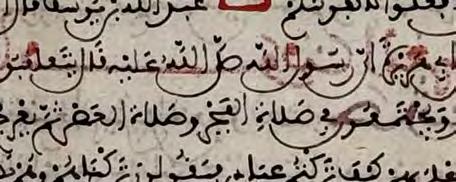 عبد الله بن يوسف قال
ابي هريرة ان رسول الله صلى الله عليه قال يتعاقبون
ويجتمعون في صلاة الفجر وصلاة العصر ثم يعرج
كيف تركتم عبادي فيقولون تركناهم وهم